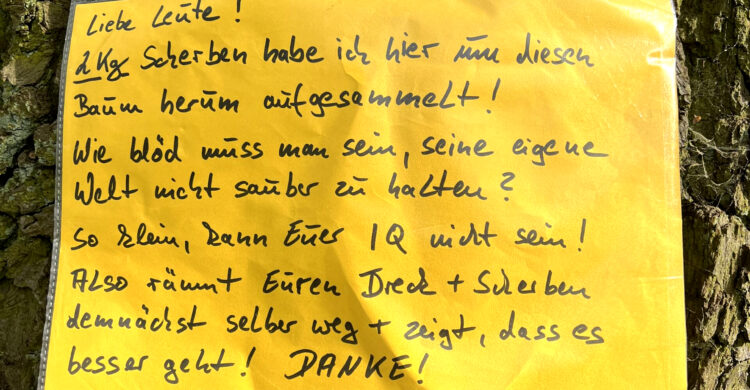 Liebe Leute!
2 Kg Scherben habe ich hier um diesen
Baum herum aufgesammelt!
Wie blöd muss man sein, seine eigene
Welt nicht sauber zu halten?
So klein, kann Euer IQ nicht sein!
Also räumt Euren Dreck + Scherben
demnächst selber weg + zeigt, dass es
besser geht! DANKE!